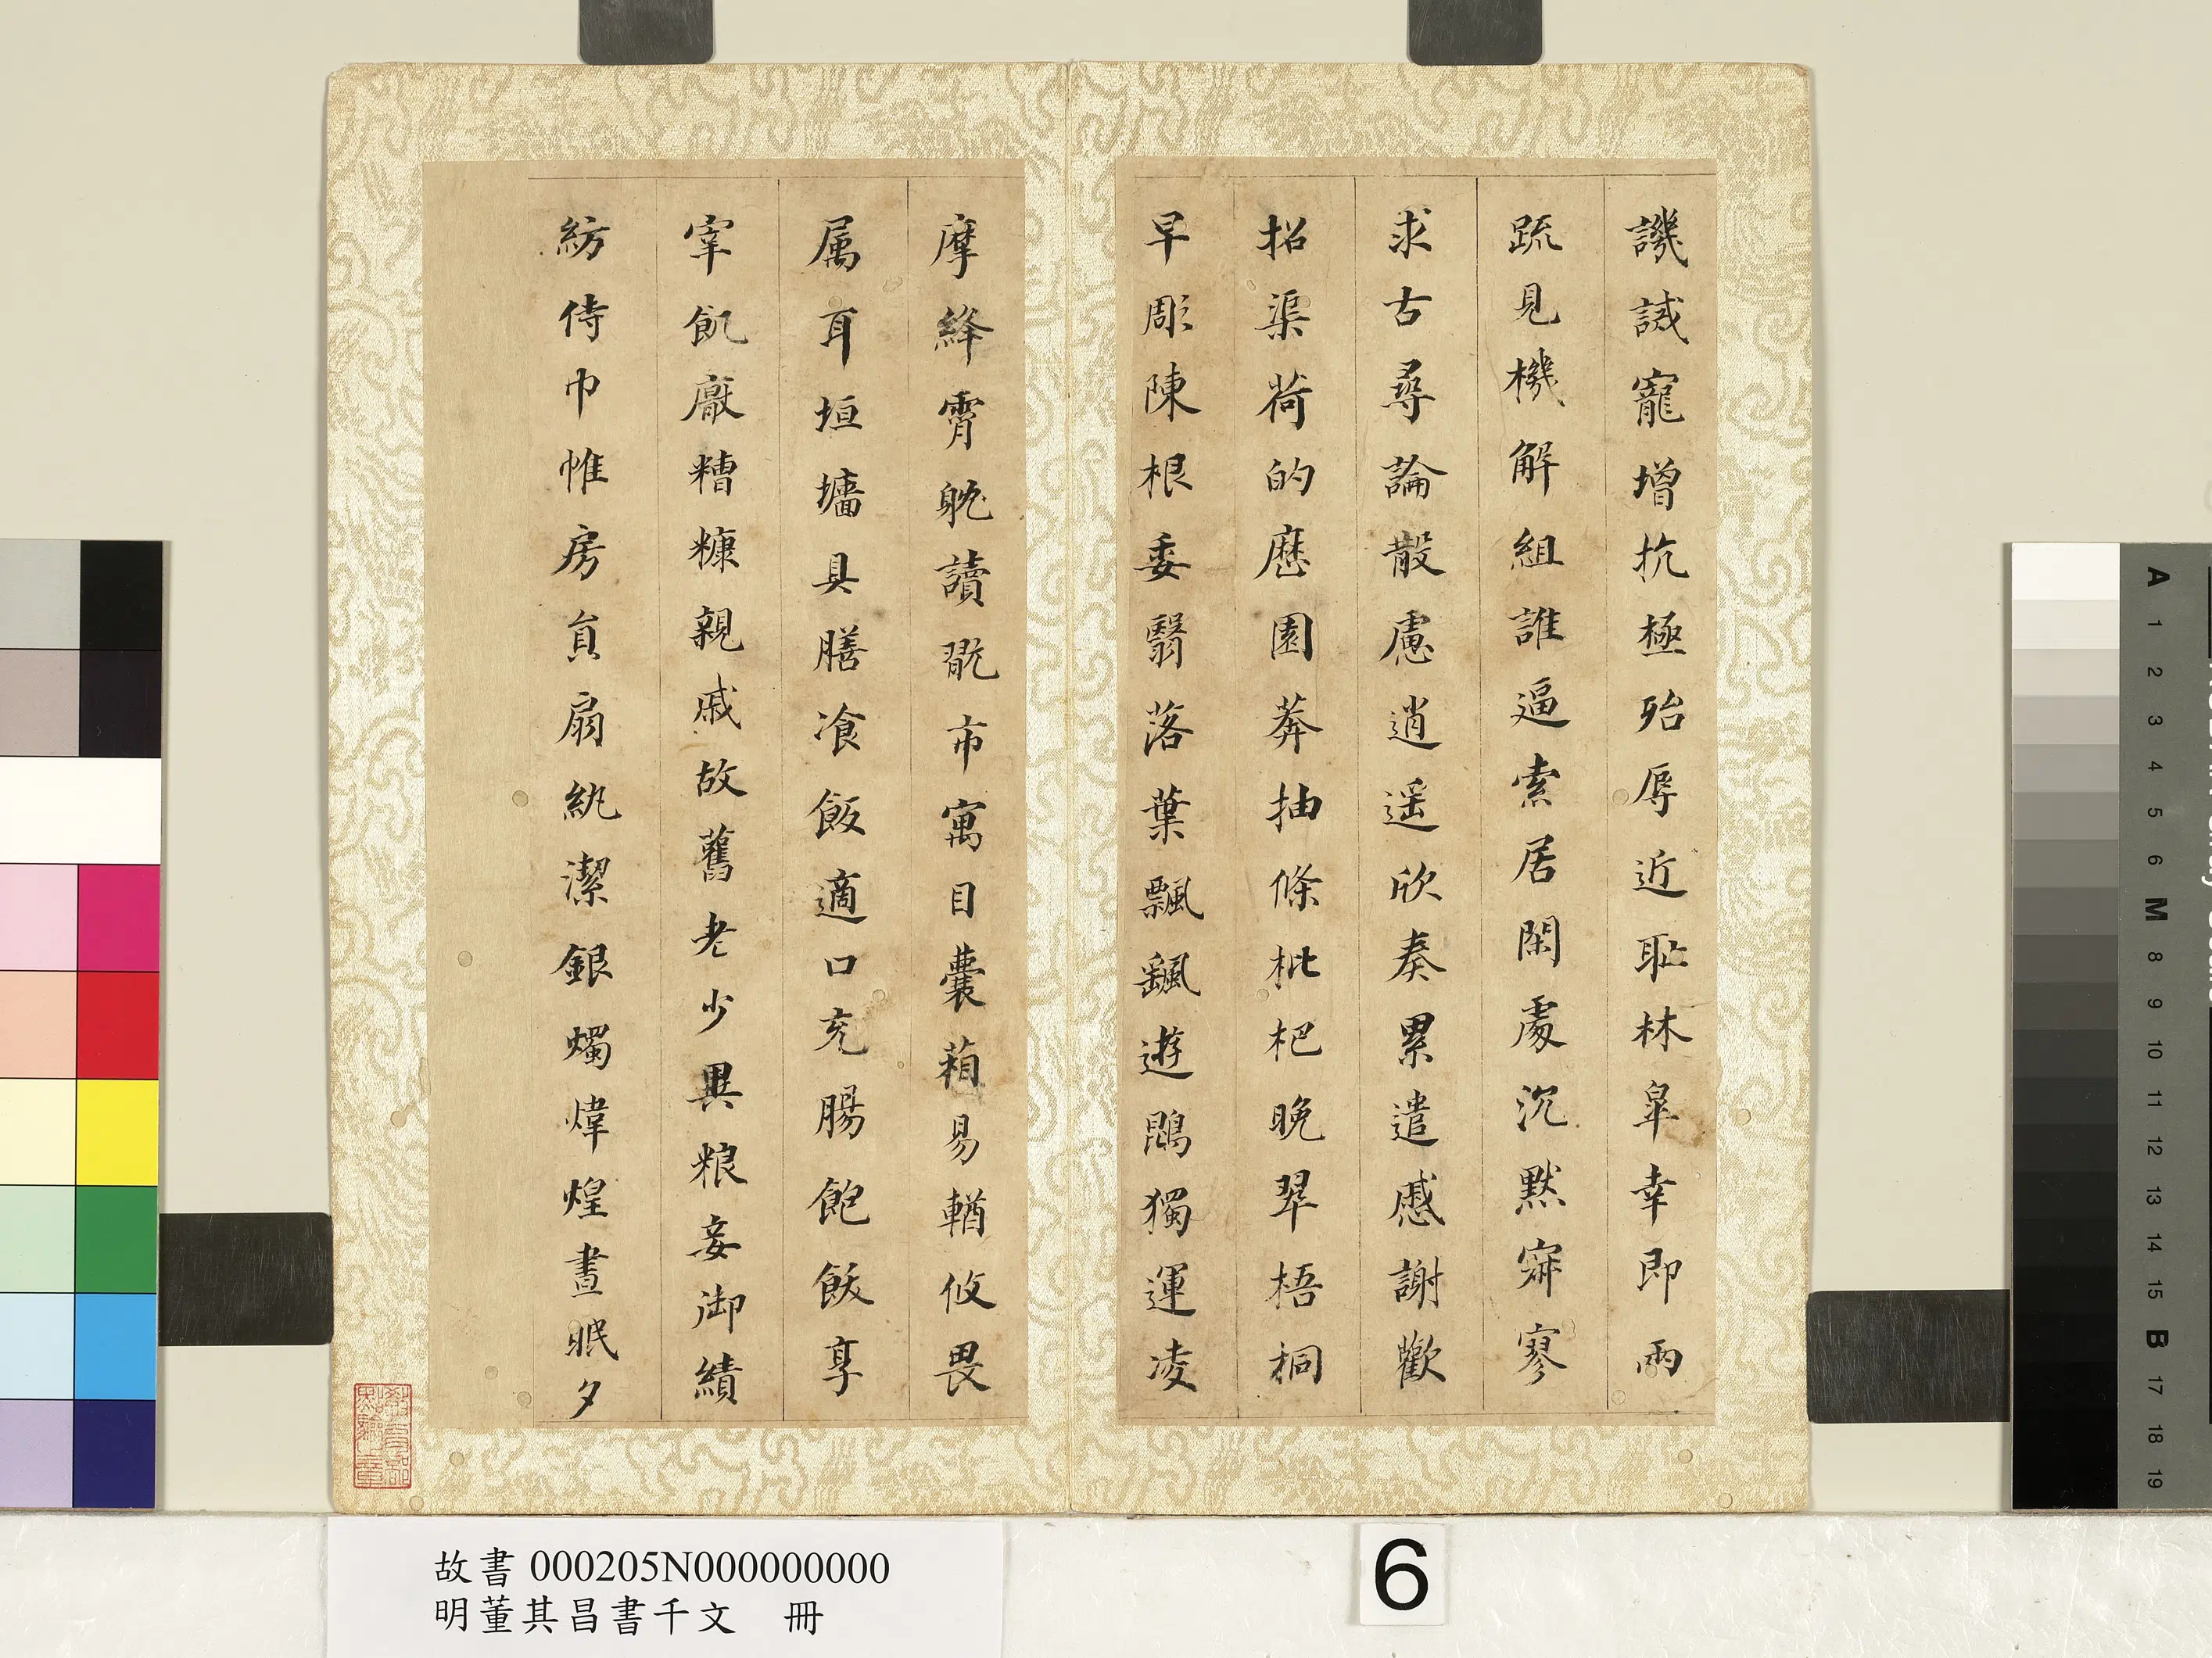 譏誡寵增抗極殆辱近耻林皐幸即兩
疏見機解組誰逼索居閑處沉默寂寥
求古尋論散慮逍遥欣奏累遣慼謝歡
招渠荷的歷園莽抽條枇杷晚翠梧桐
早彫陳根委翳落葉飄颻遊鵾獨運凌
摩絳霄躭讀翫市寓目囊箱易輶攸畏
属耳垣墻具膳飡飯適口充腸飽飫享
宰飢厭糟糠親戚故舊老少異粮妾御績
紡侍巾帷房員扇紈潔銀燭煒煌晝眠夕
教育部
點驗之章
故書 000205N000000000
明董其昌書千文 冊
6
A 1 2 3 4 5 6 M 8 9 10 11 12 13 14 15 B 17 18 19